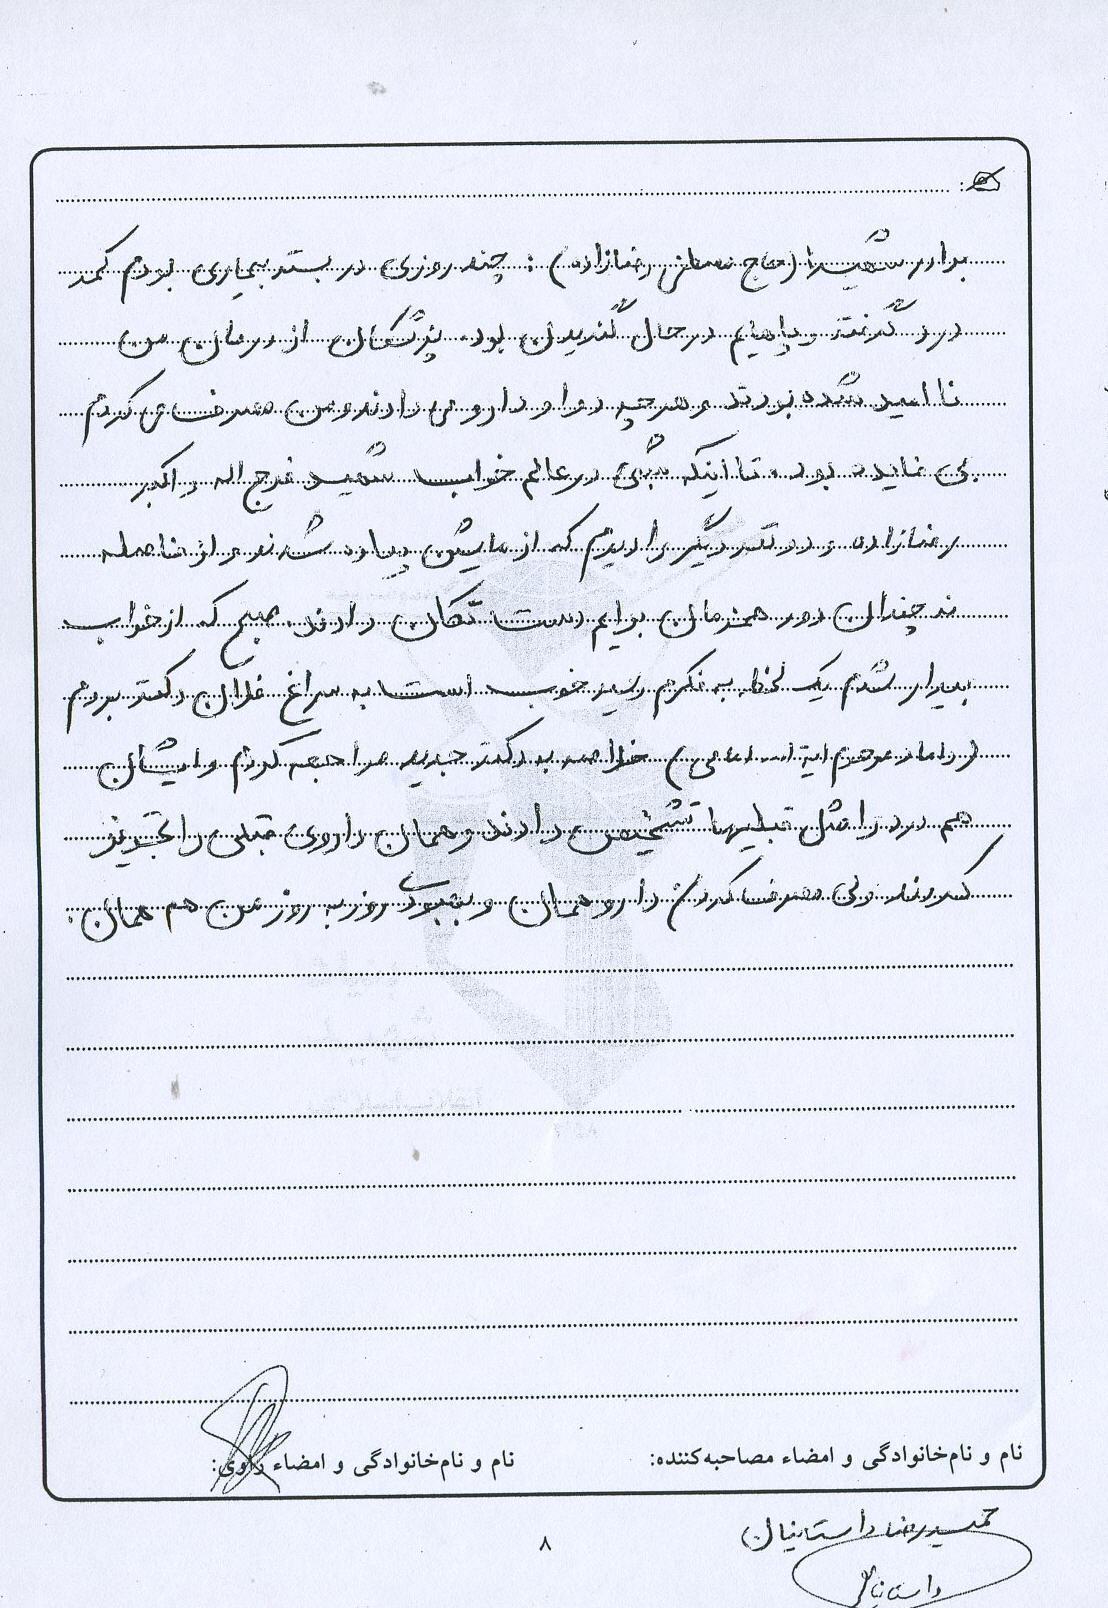 برادر شهید (حاج مصطفی رضازاده) : چند روزی در بستر بیماری بودم کمد
درد گرفته و پاهایم در حال گندیدن بود. پزشکان از درمان من
نا امید شده بودند و هرچه دوا و دارو می دادند و من مصرف می کردم
بی فایده بود. تا اینکه شبی در عالم خواب شهید فرج اله و اکبر
رضازاده و دو نفر دیگر را دیدم که از ماشین پیاده شدند و از فاصله
نه چندان دور همزمان برایم دست تکان دادند. صبح که از خواب
بیدار شدم یک لحظه به فکرم رسید خوب است به سراغ فلان دکتر بروم
(داماد مرحوم آیة ا...) خلاصه به دکتر جدید مراجعه کردم و ایشان
هم درد را مثل قبلیها تشخیص دادند و همان داروی قبلی را تجویز
کردند ولی مصرف کردن دارو همان و بهبودی روز به روز من هم همان.
نام و نام‌خانوادگی و امضاء مصاحبه‌کننده:
نام و نام‌خانوادگی و امضاء راوی:
حمیدرضا داستانیان
داستانیان
۸